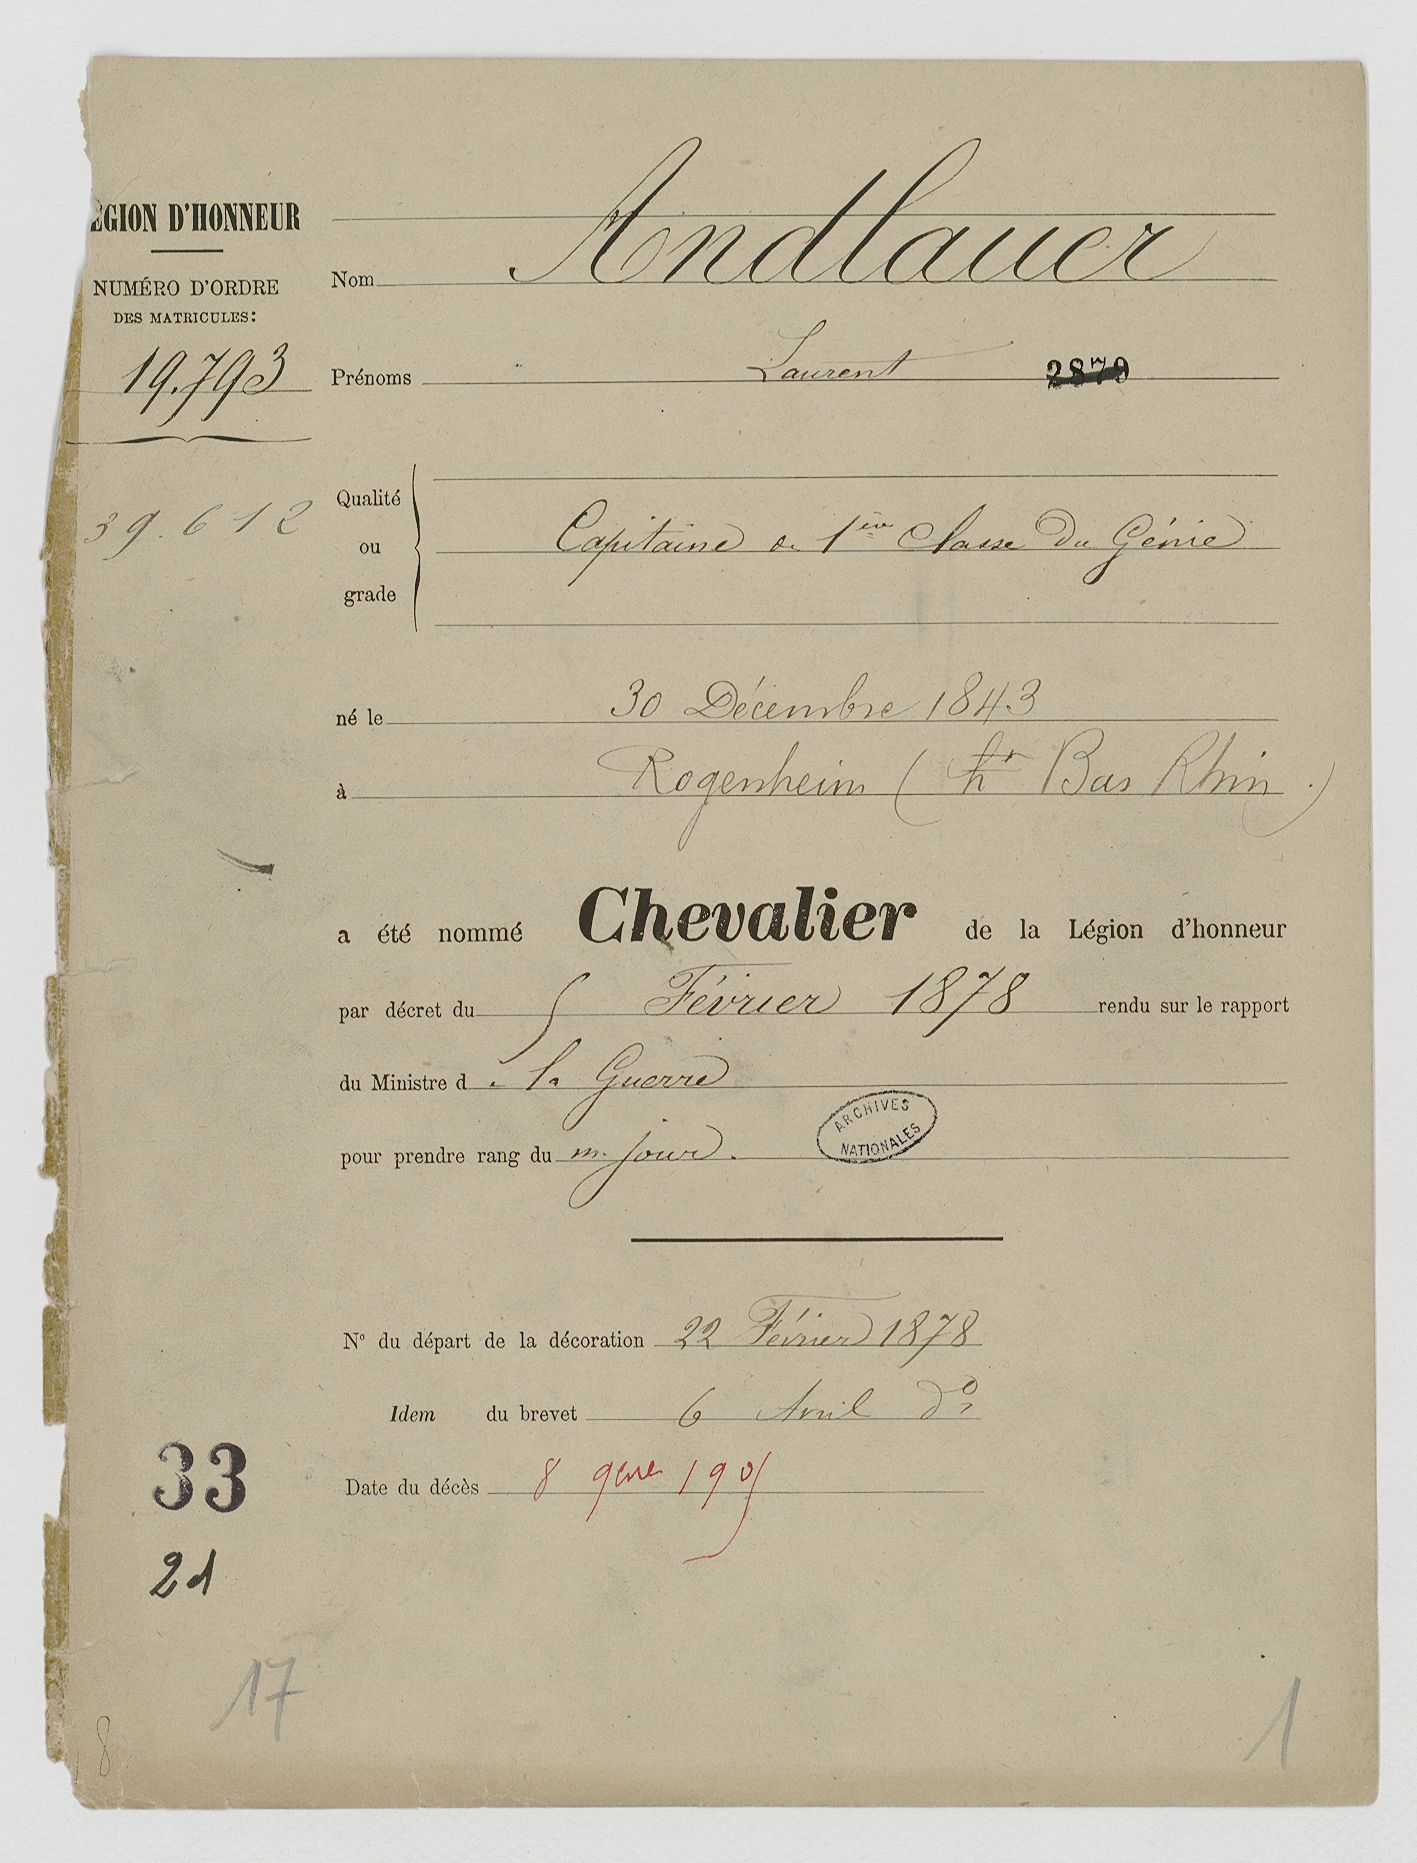 ÉGION D'HONNEUR
NUMÉRO D'ORDRE
DES MATRICULES:
19.793
39.612
Nom Andlauer
Prénoms Laurent 2879
Qualité
ou Capitaine de 1ère Classe du Génie
grade
né le 30 Décembre 1843
à Rogenheim ( ht Bas Rhin.)
a été nommé Chevalier de la Légion d'honneur
par décret du 5 Février 1878 rendu sur le rapport
du Ministre de la Guerre
pour prendre rang du m. jour.
ARCHIVES
NATIONALES
N° du départ de la décoration 22 Février 1878
Idem du brevet 6 Avril do
Date du décès 8 9bre 1905
33
21
17
8
1